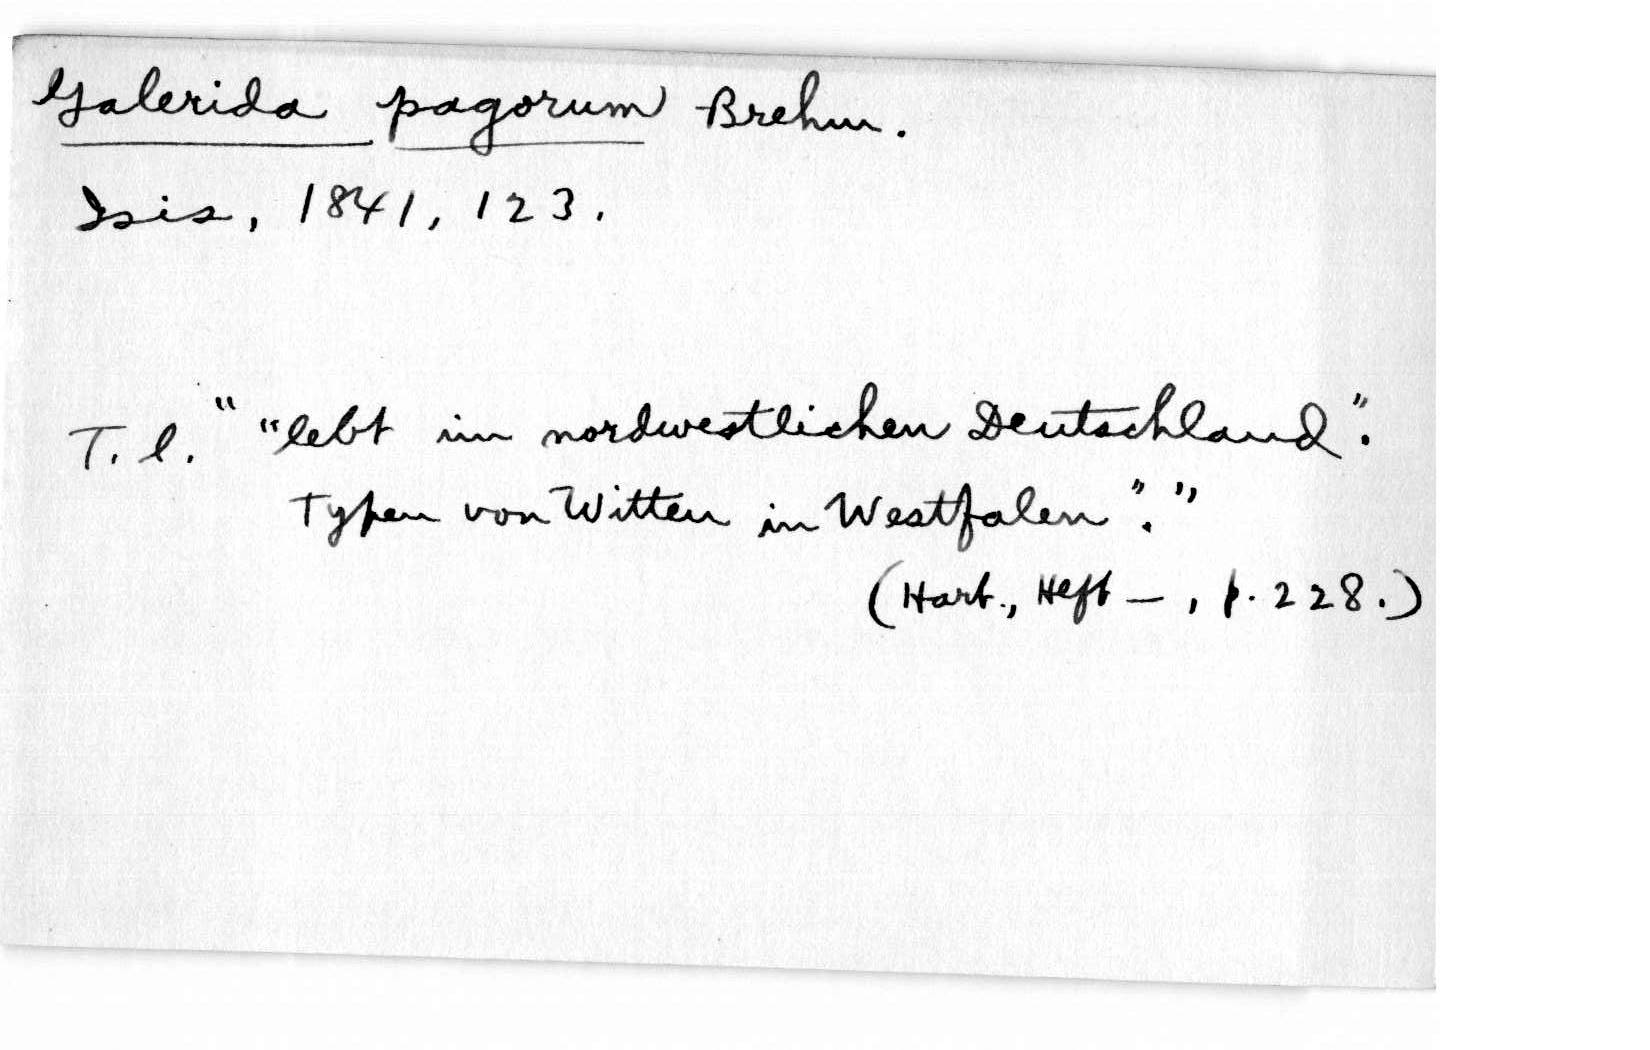 Galerida pagorum Brehm.
Isis, 1841, 123.
T. l. " "lebt im nordwestlichen Deutschland".
Typen von Witten in Westfalen"."
(Hart., Heft —, p. 228.)